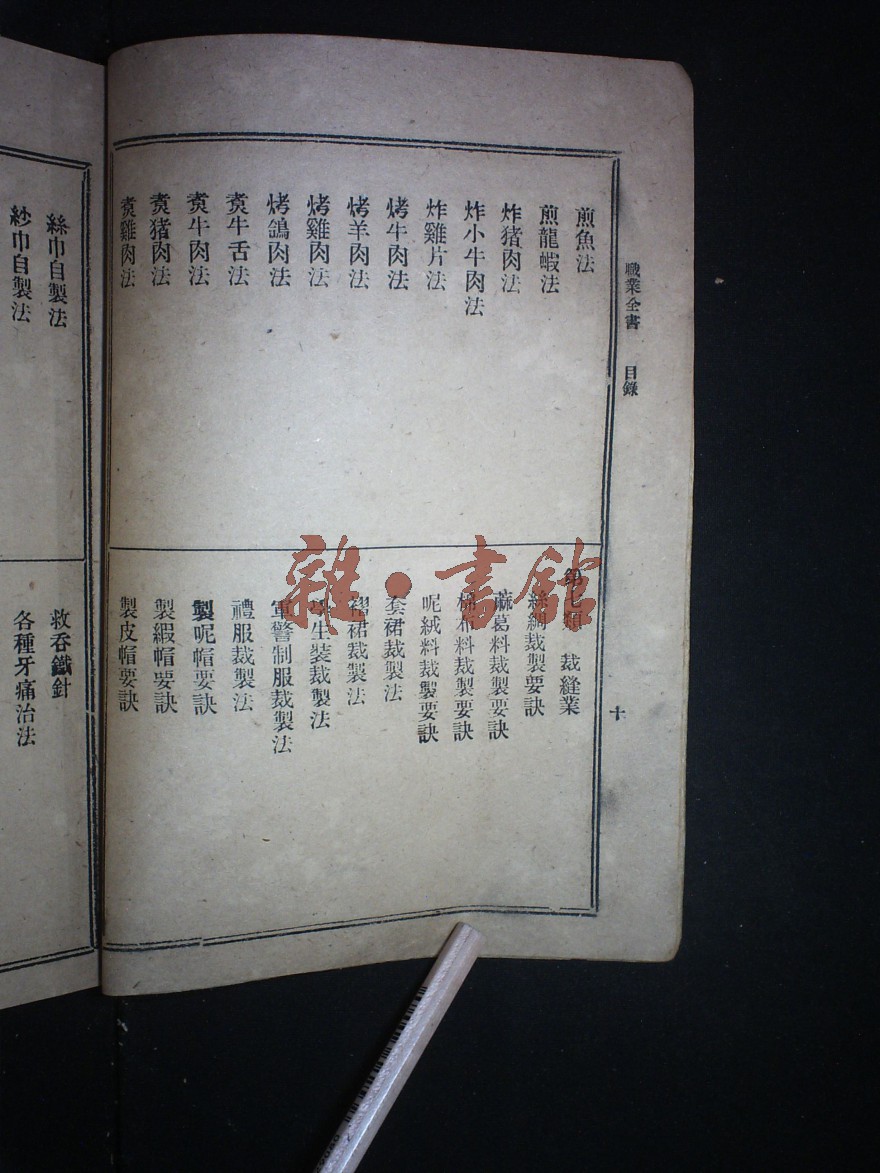 職業全書 目錄
十
煎魚法
煎龍蝦法
炸猪肉法
炸小牛肉法
炸雞片法
烤牛肉法
烤羊肉法
烤雞肉法
烤鴿肉法
煑牛舌法
煑牛肉法
煑猪肉法
煑雞肉法
第七類 裁縫業
絲綢裁製要訣
蔴葛料裁製要訣
棉布料裁製要訣
呢絨料裁製要訣
套裙裁製法
褶裙裁製法
學生裝裁製法
軍警制服裁製法
禮服裁製法
製呢帽要訣
製緞帽要訣
製皮帽要訣
絲巾自製法
紗巾自製法
救吞鐵針
各種牙痛治法
雜·書館